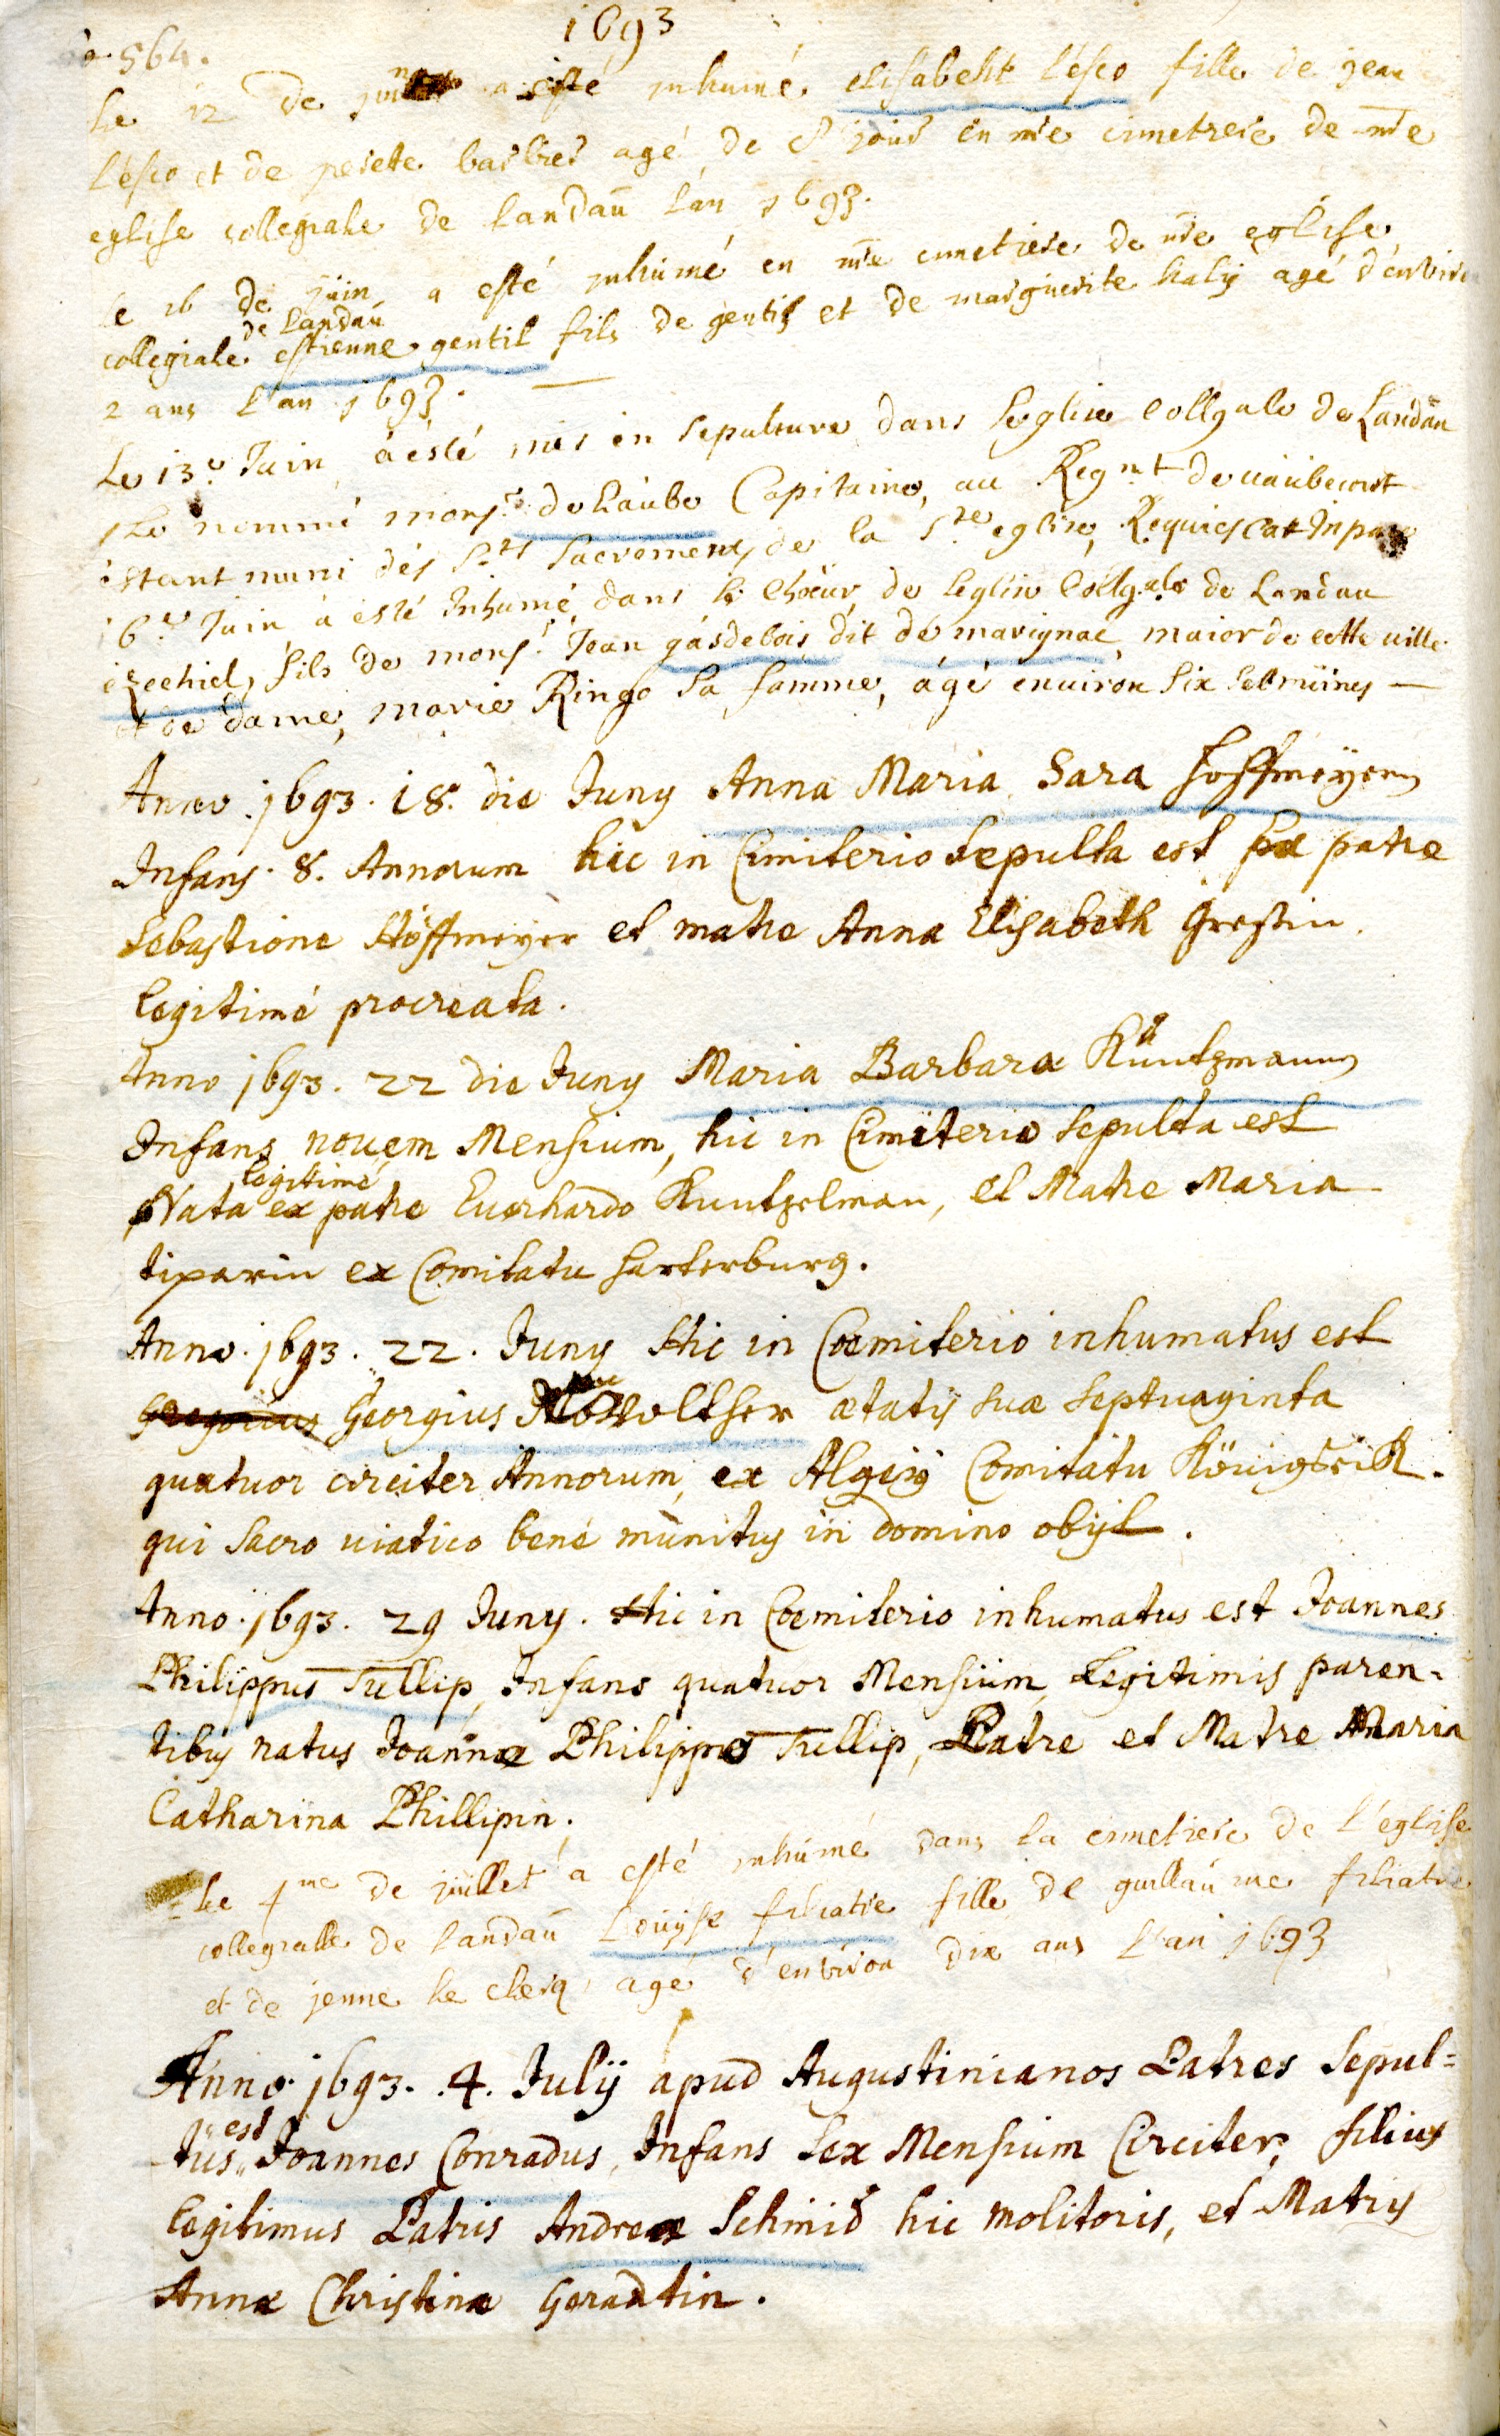 1693
564.
Le 12 de juin a esté inhumé elisabeht lésco fille de jean
lésco et de perete barbier agé de 8 jours en nre cimetreie de nre
eglise collegiale de landaü l'an 1693.
le 16 de juin a esté inhumé en nre cimetiere de nre eglise
collegiale de landaü estienne gentil fils de gentil et de marguerite haly agé d'environ
2 ans l'an 1693.
Le 13e Juin à esté mis en sepulture dans leglise Collgale de Landau
Le nommé monsr. de Laube Capitaine, au Regmt de vaubecourt
estant muni dés Sts Sacrements de la Ste eglise, Requiescat In pace
16e Juin à esté Inhumé dans le Chœur de leglise Collgale de Landau
ezechiel, fils de monsr. Jean gasdebois dit de marignac maior de cette ville
et de dame, marie Ringo sa famme, ágé enuiron six sebmaines —
Anno 1693. 18. die Juny Anna Maria Sara Hoffmeyern
Infans. 8. Annorum hic in Cimiterio Sepulta est ex patre
Sebastiono Hoffmeyer et matre Anna Elisabeth Greßin.
legitimé procreata.
Anno 1693. 22 die Juny Maria Barbara Kuntzmann
Infans nouem Mensium, hic in Cimiterio Sepulta est
Nata legitimé ex patre Euerhardo Kuntzelman, et Matre Maria
tiparin ex Comitatu Harterburg.
Anno. 1693. 22. Juny Hic in Cœmiterio inhumatus est
Gregorius Georgius ætatis suæ Septuaginta
quatuor circiter Annorum, ex Algeij Comitatu Königseik.
qui Sacro uiatico bené munitus in domino obijt.
Anno. 1693. 29 Juny. Hic in Cœmiterio inhumatus est Joannes
Philippus Tullip, Infans quatuor Mensium, Legitimis paren-
tibus natus Joanne Philippo Tullip, Patre et Matre Maria
Catharina Phillipin.
Le 4me de juillet a esté inhumé dans la cimetiere de l'eglise
collegialle de landaü Louÿse filiatre fille de guillaume filiatre
et de jenne le clerq agé d'environ dix ans l'an 1693
Anno. 1693. 4. Julij apud Augustinianos Patres Sepul=
tus est Joannes Conradus, Infans Sex Mensium Circiter, filius
legitimus Patris Andreæ Schmid hic molitoris, et Matris
Annæ Christinæ Gerandtin.